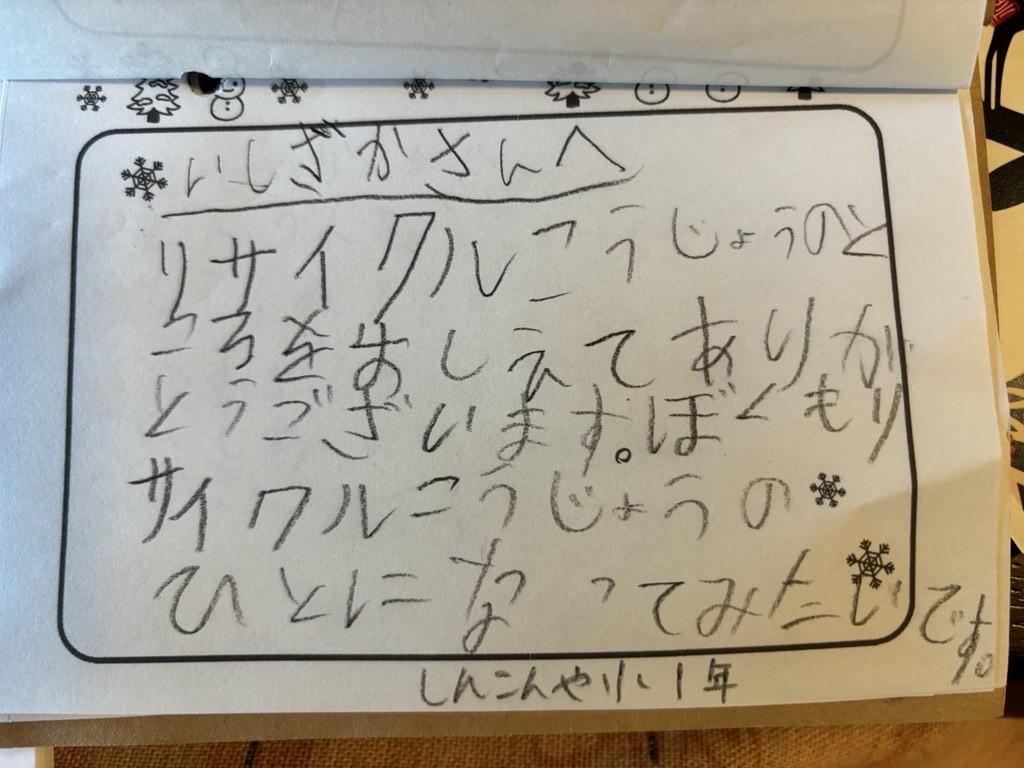 いしざかさんへ
リサイクルこうじょうのと
ころをおしえてありが
とうございます。ぼくもリ
サイクルこうじょうの
ひとになってみたいです。
しんこんや小1年